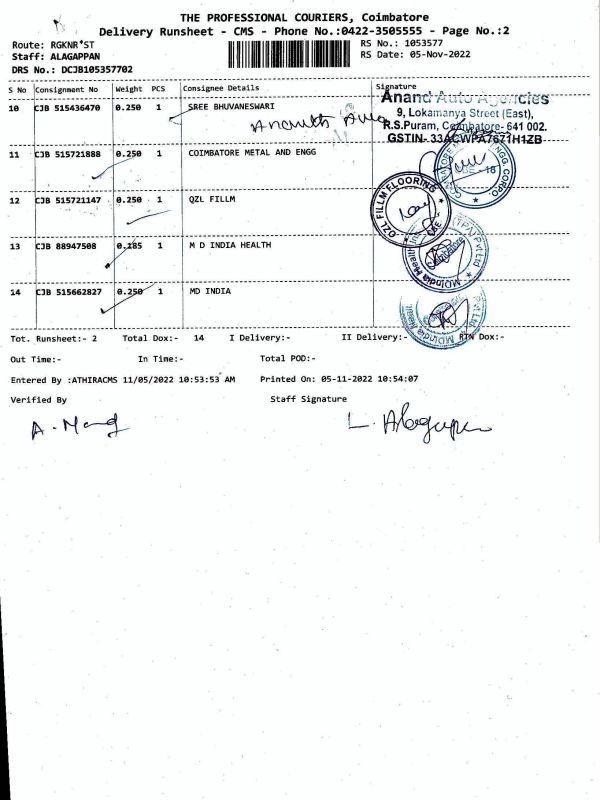 THE PROFESSIONAL COURIERS, Coimbatore
Delivery Runsheet - CMS - Phone No.:0422-3505555 - Page No.:2
Route: RGKNR*ST
RS No.: 1053577
Staff: ALAGAPPAN
RS Date: 05-Nov-2022
DRS No.: DCJB105357702
S No Consignment No Weight PCS Consignee Details Signature
10 CJB 515436470 0.250 1 SREE BHUVANESWARI
Anand Auto Agencies
9, Lokamanya Street (East),
R.S.Puram, Coimbatore- 641 002.
GSTIN- 33ACWPA7671H1ZB
11 CJB 515721888 0.250 1 COIMBATORE METAL AND ENGG
12 CJB 515721147 0.250 1 QZL FILLM
QZL FILLM FLOORING
13 CJB 88947508 0.185 1 M D INDIA HEALTH
MDIndia Health
(TPA) Pvt Ltd
14 CJB 515662827 0.250 1 MD INDIA
Tot. Runsheet:- 2 Total Dox:- 14 I Delivery:- II Delivery:- RTN Dox:-
Out Time:- In Time:- Total POD:-
Entered By :ATHIRACMS 11/05/2022 10:53:53 AM Printed On: 05-11-2022 10:54:07
Verified By Staff Signature